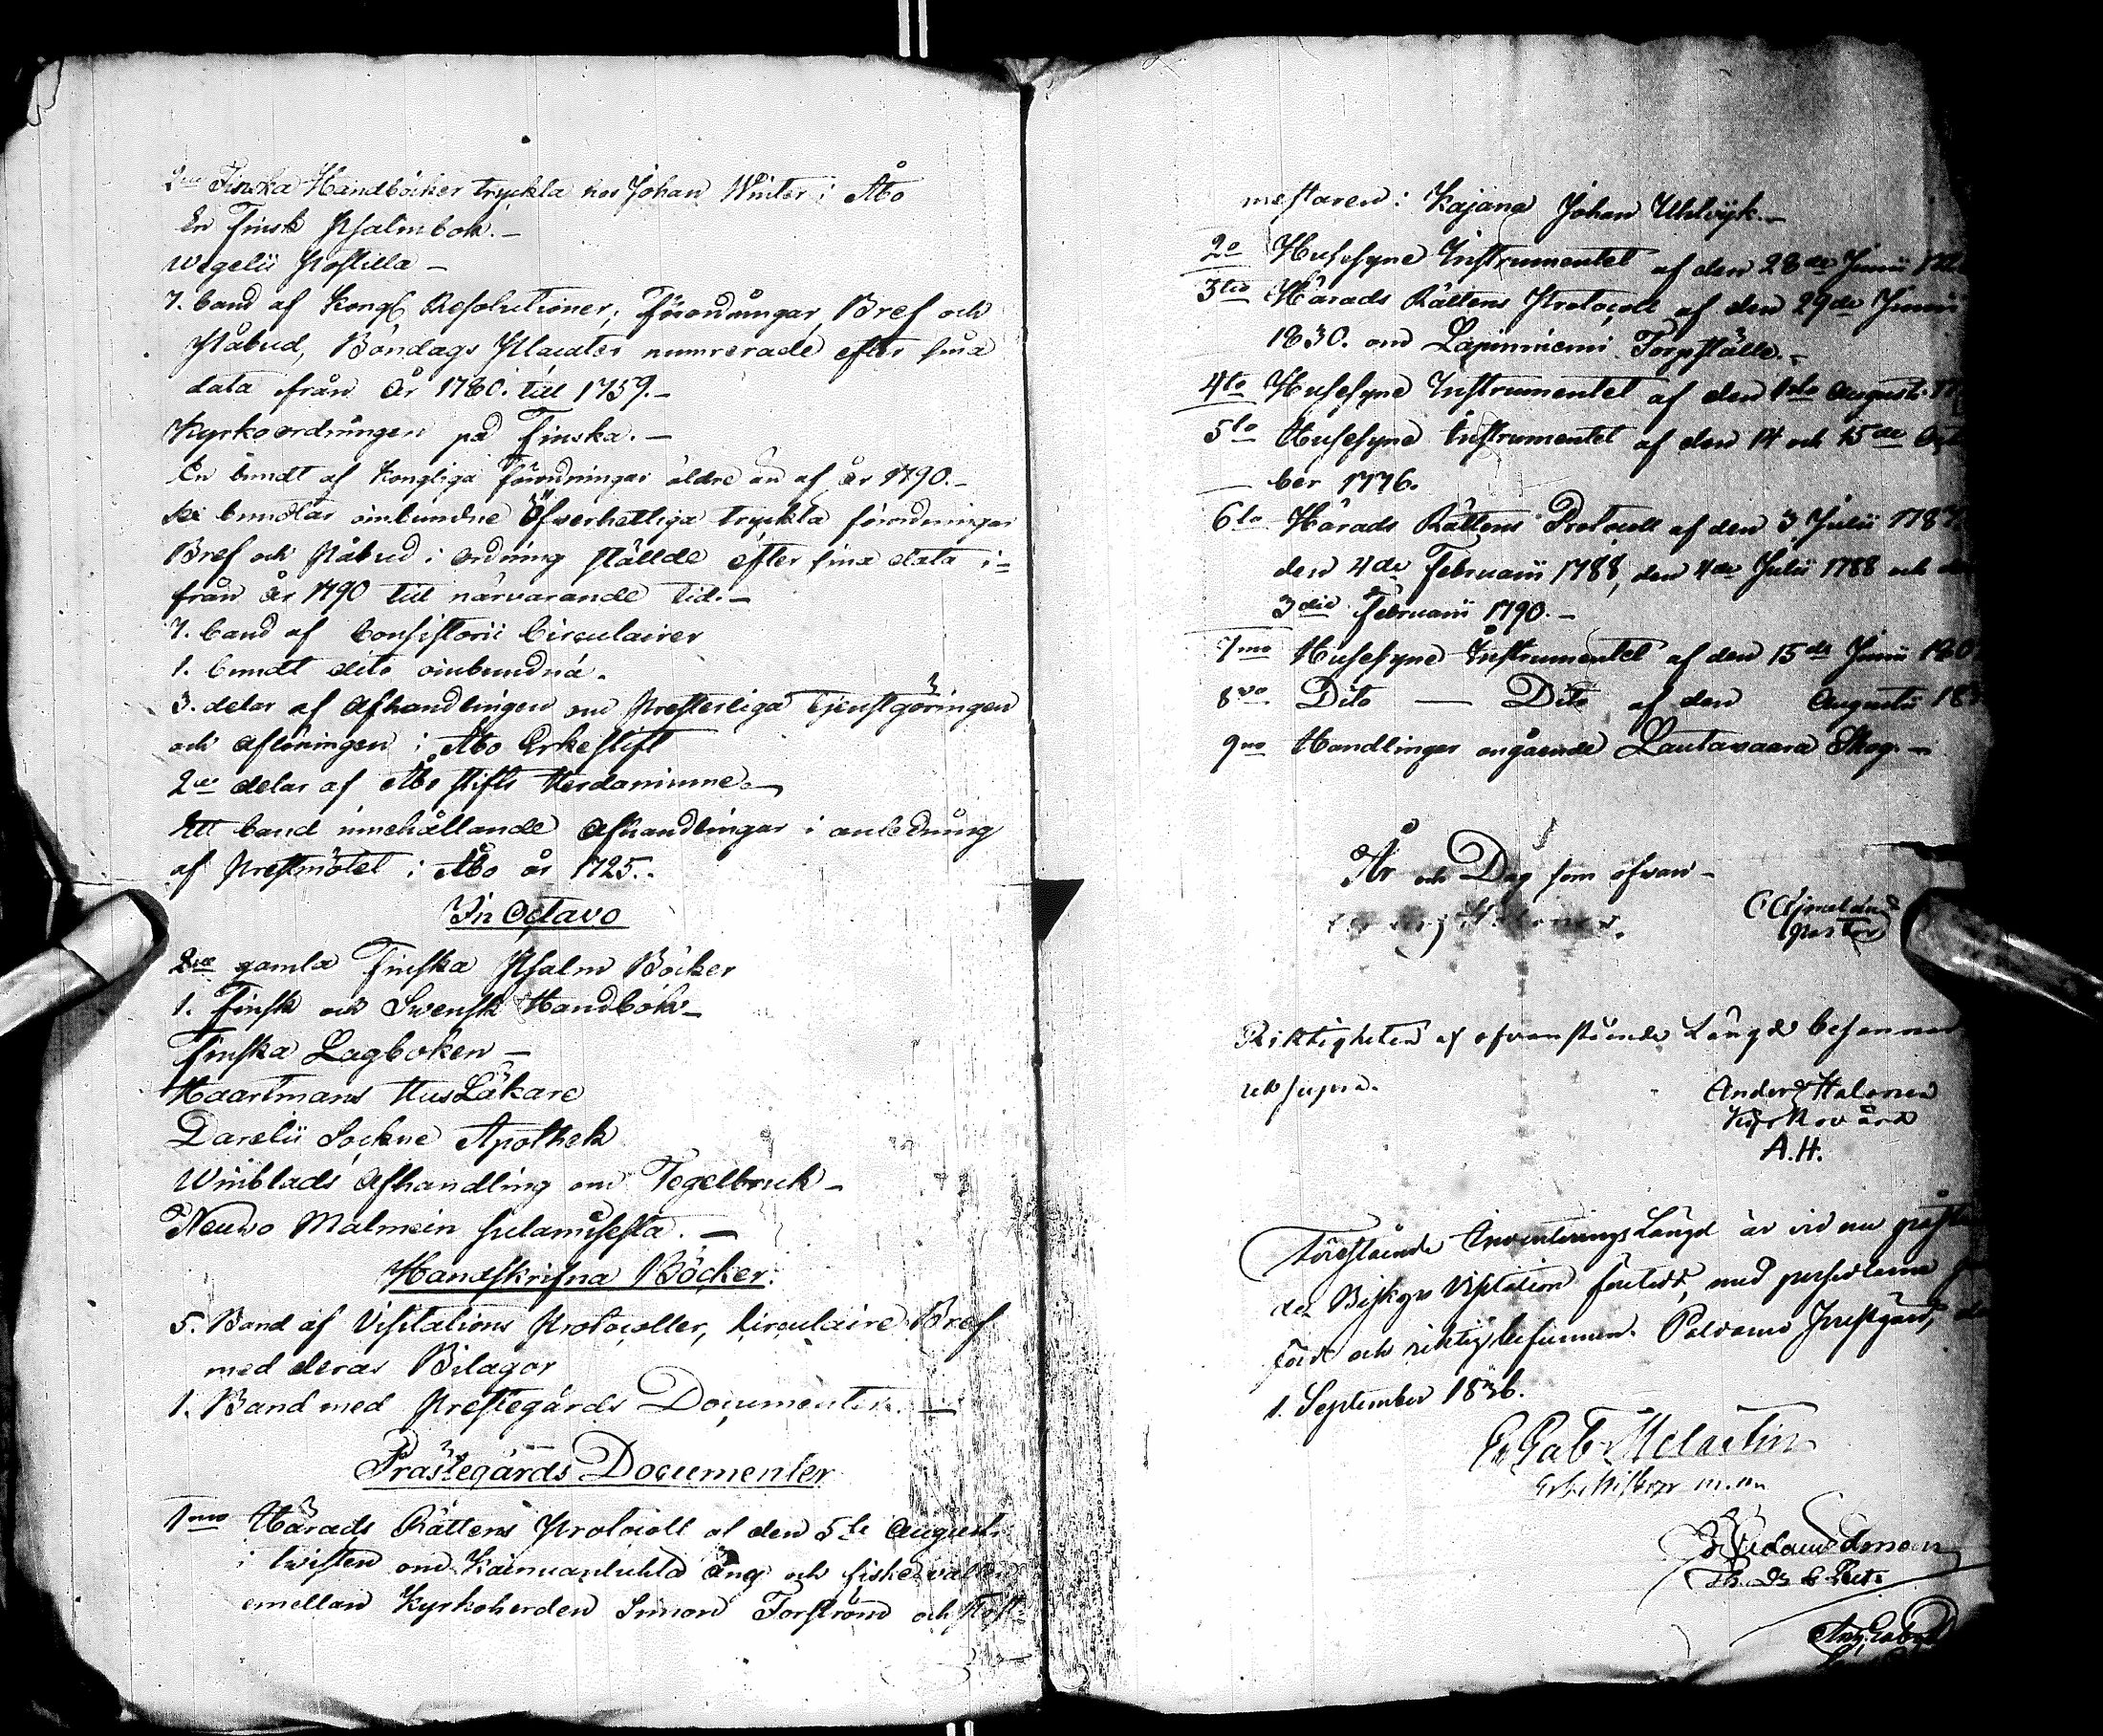 2ne Finska Handböcker tryckta hos Johan Winter i Åbo
En Finsk Psalmbok.-
Wegelii Postilla -
7. band af Kongl Resolutioner, Förordningar, Bref och
Påbud, Böndags Placater numrerade efter sina
data från år 1780. till 1759.-
Kyrkoordningen på Finska.-
En bundt af Kongliga förordningar äldre än af år 1790.-
bundtar oinbundne Öfwerhetliga tryckta förordningar
Bref och Påbud i ordning stållde efter sina data i=
från år 1790 till närvarande tid.-
7. band af Consistorii Circulairer
1. bundt dito oinbundna.
3. delar af Afhandlingen om Presterliga Tjenstgöringen
och Aflöningen i Åbo Erkestift
2ne delar af Åbo stifts Herdaminne.-
Ett band innehållande Afhandlingar i anledning
af Prestmötet i Åbo år 1725.-
In Octavo
2ne gamla Finska Psalm Böcker
1. Finsk och Swensk Handbok-
Finska Lagboken -
Haartmans HusLäkare
Darelii Sockne Apothek
Winblads Afhandling om Tegelbruk -
Neuwo Malmein sulamisesta. -
Handskrifna Böcker.
5. Band af Visitations Protocoller, Circulaire Bref
med deras Bilagor
1. Band med Prestegårds Documenter. -
Prästegårds Documenter
1mo Härads Rättens Protocoll af den 5te Augusti
i twisten om äng och fiskevatten
emellan Kyrkoherden Simon Forström och Post=
mestaren i Kajana Johan Uhlvijk.-
2o Husesyne Instrumentet af den 28de Junii
3tio Härads Rättens Protocoll af den 29de Junii
1830. om Lapinniemi Torpställe.-
4to Husesyne Instrumentet af den Augusti
5to Husesyne Instrumentet af den 14 och 15de
ber 1776.
6to Härads Rättens Protocoll af den 3 Julii 1787
den 4de Februarii 1788, den 4de Julii 1788 och
3die Februarii 1790.-
7mo Husesyne Instrumentet af den 15de Junii
8vo Dito - Dito af den Augusti
9no Handlingar angående Lautavaara Skog.-
År och Dag som ofwan -
Pastor
Riktigheten af ofwanstående Längd
ut supra.
Anders Halonen
Kyrkovärd
A.H.
Förestående Inventerings Längd är vid nu
der Biskops Visitation företedd, med persedlarne
förd och riktig befunnen. Paldamo Prestgård,
1. September 1836.
E. Gab. Melartin
Erkebiskop m.m